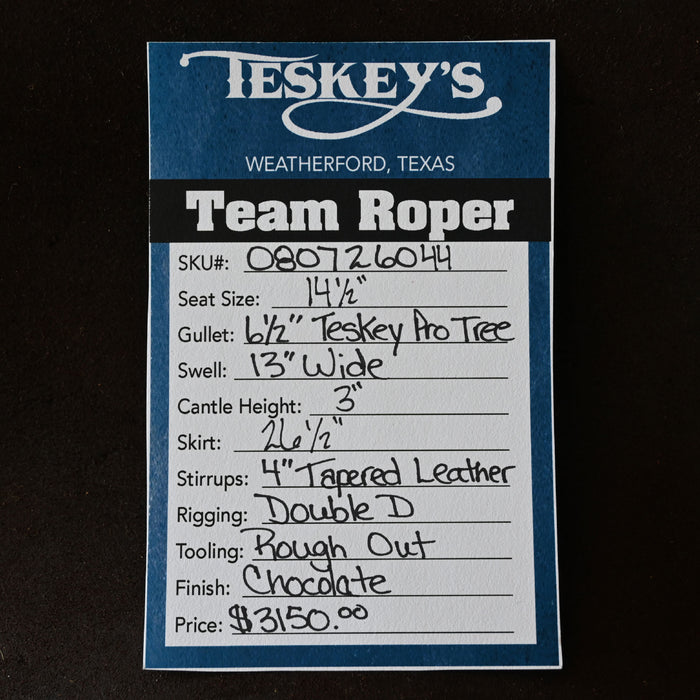 TESKEY'S
WEATHERFORD, TEXAS
Team Roper
SKU#: 080726044
Seat Size: 14 1/2"
Gullet: 6 1/2" Teskey Pro Tree
Swell: 13" Wide
Cantle Height: 3"
Skirt: 26 1/2"
Stirrups: 4" Tapered Leather
Rigging: Double D
Tooling: Rough Out
Finish: Chocolate
Price: $3150.00